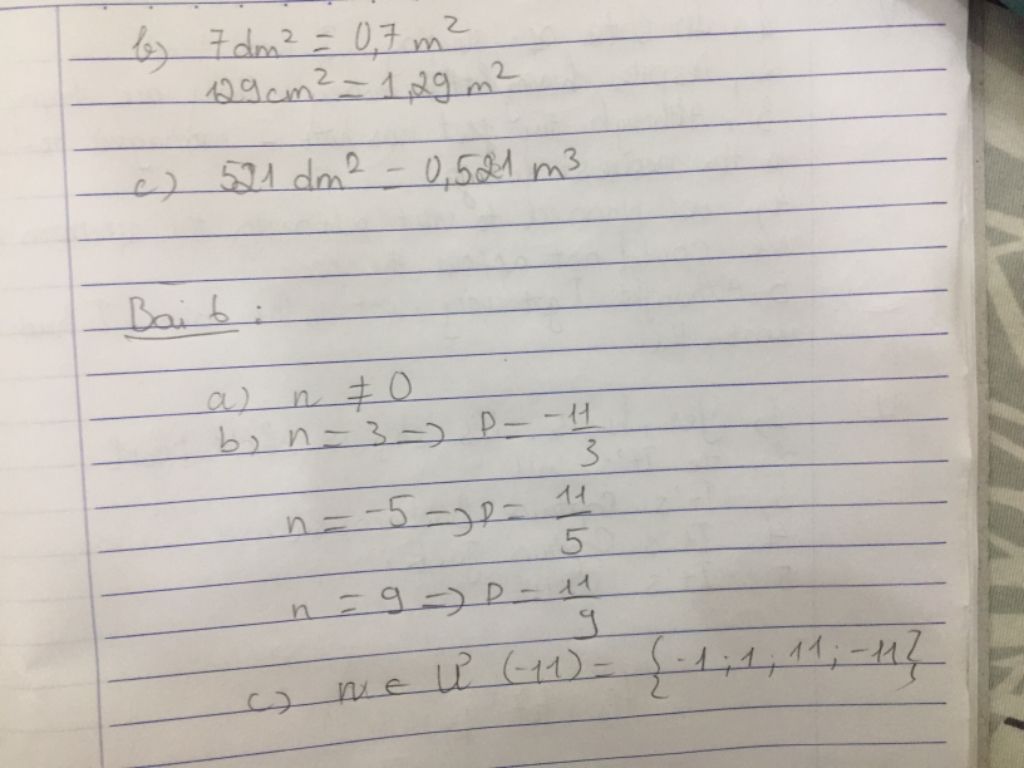 b) 7dm² = 0,7 m²
129cm² = 1,29 m²
c) 521 dm² = 0,521 m³
Bai 6 :
a) n ≠ 0
b) n = 3 => P = -11/3
n = -5 => P = 11/5
n = 9 => P = 11/9
c) n ∈ Ư (-11) = {-1 ; 1 ; 11 ; -11}